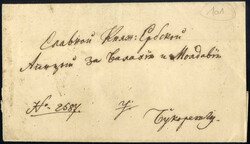 Славной Княж: Србской
Агенцıи за Валахıю и Молдавıю
№ 2587.
у
Букурешту